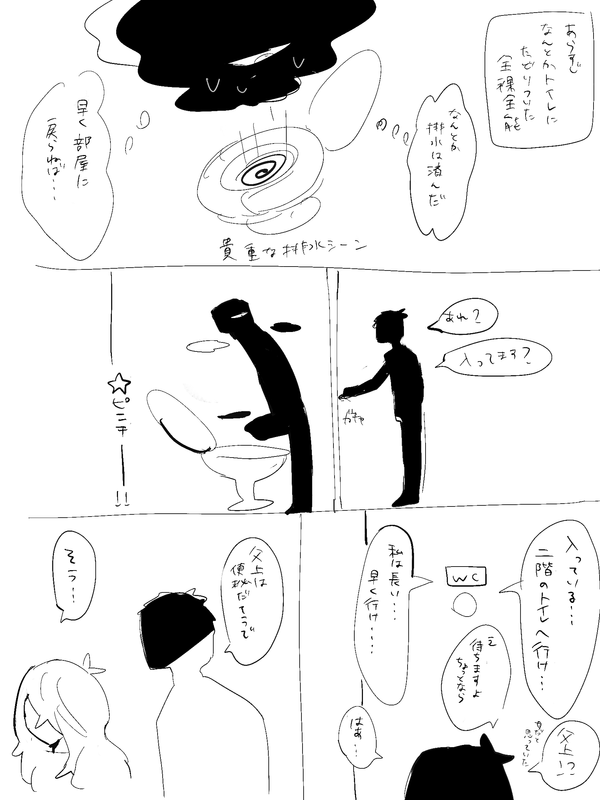 あらすじ
なんとかトイレに
たどりついた
全裸全能
なんとか
排水は済んだ
早く部屋に
戻らねば・・・
貴重な排水シーン
あれ?
入ってます?
ガチャ
☆ピンチ━━!!
入っている・・・
二階のトイレへ行け・・・
WC
父上!?
兄だと
思っていた
え
待ちますよ
ちょっとなら
私は長い・・・
早く行け・・・
はぁ・・
父上は
便秘だそうで
そう・・・